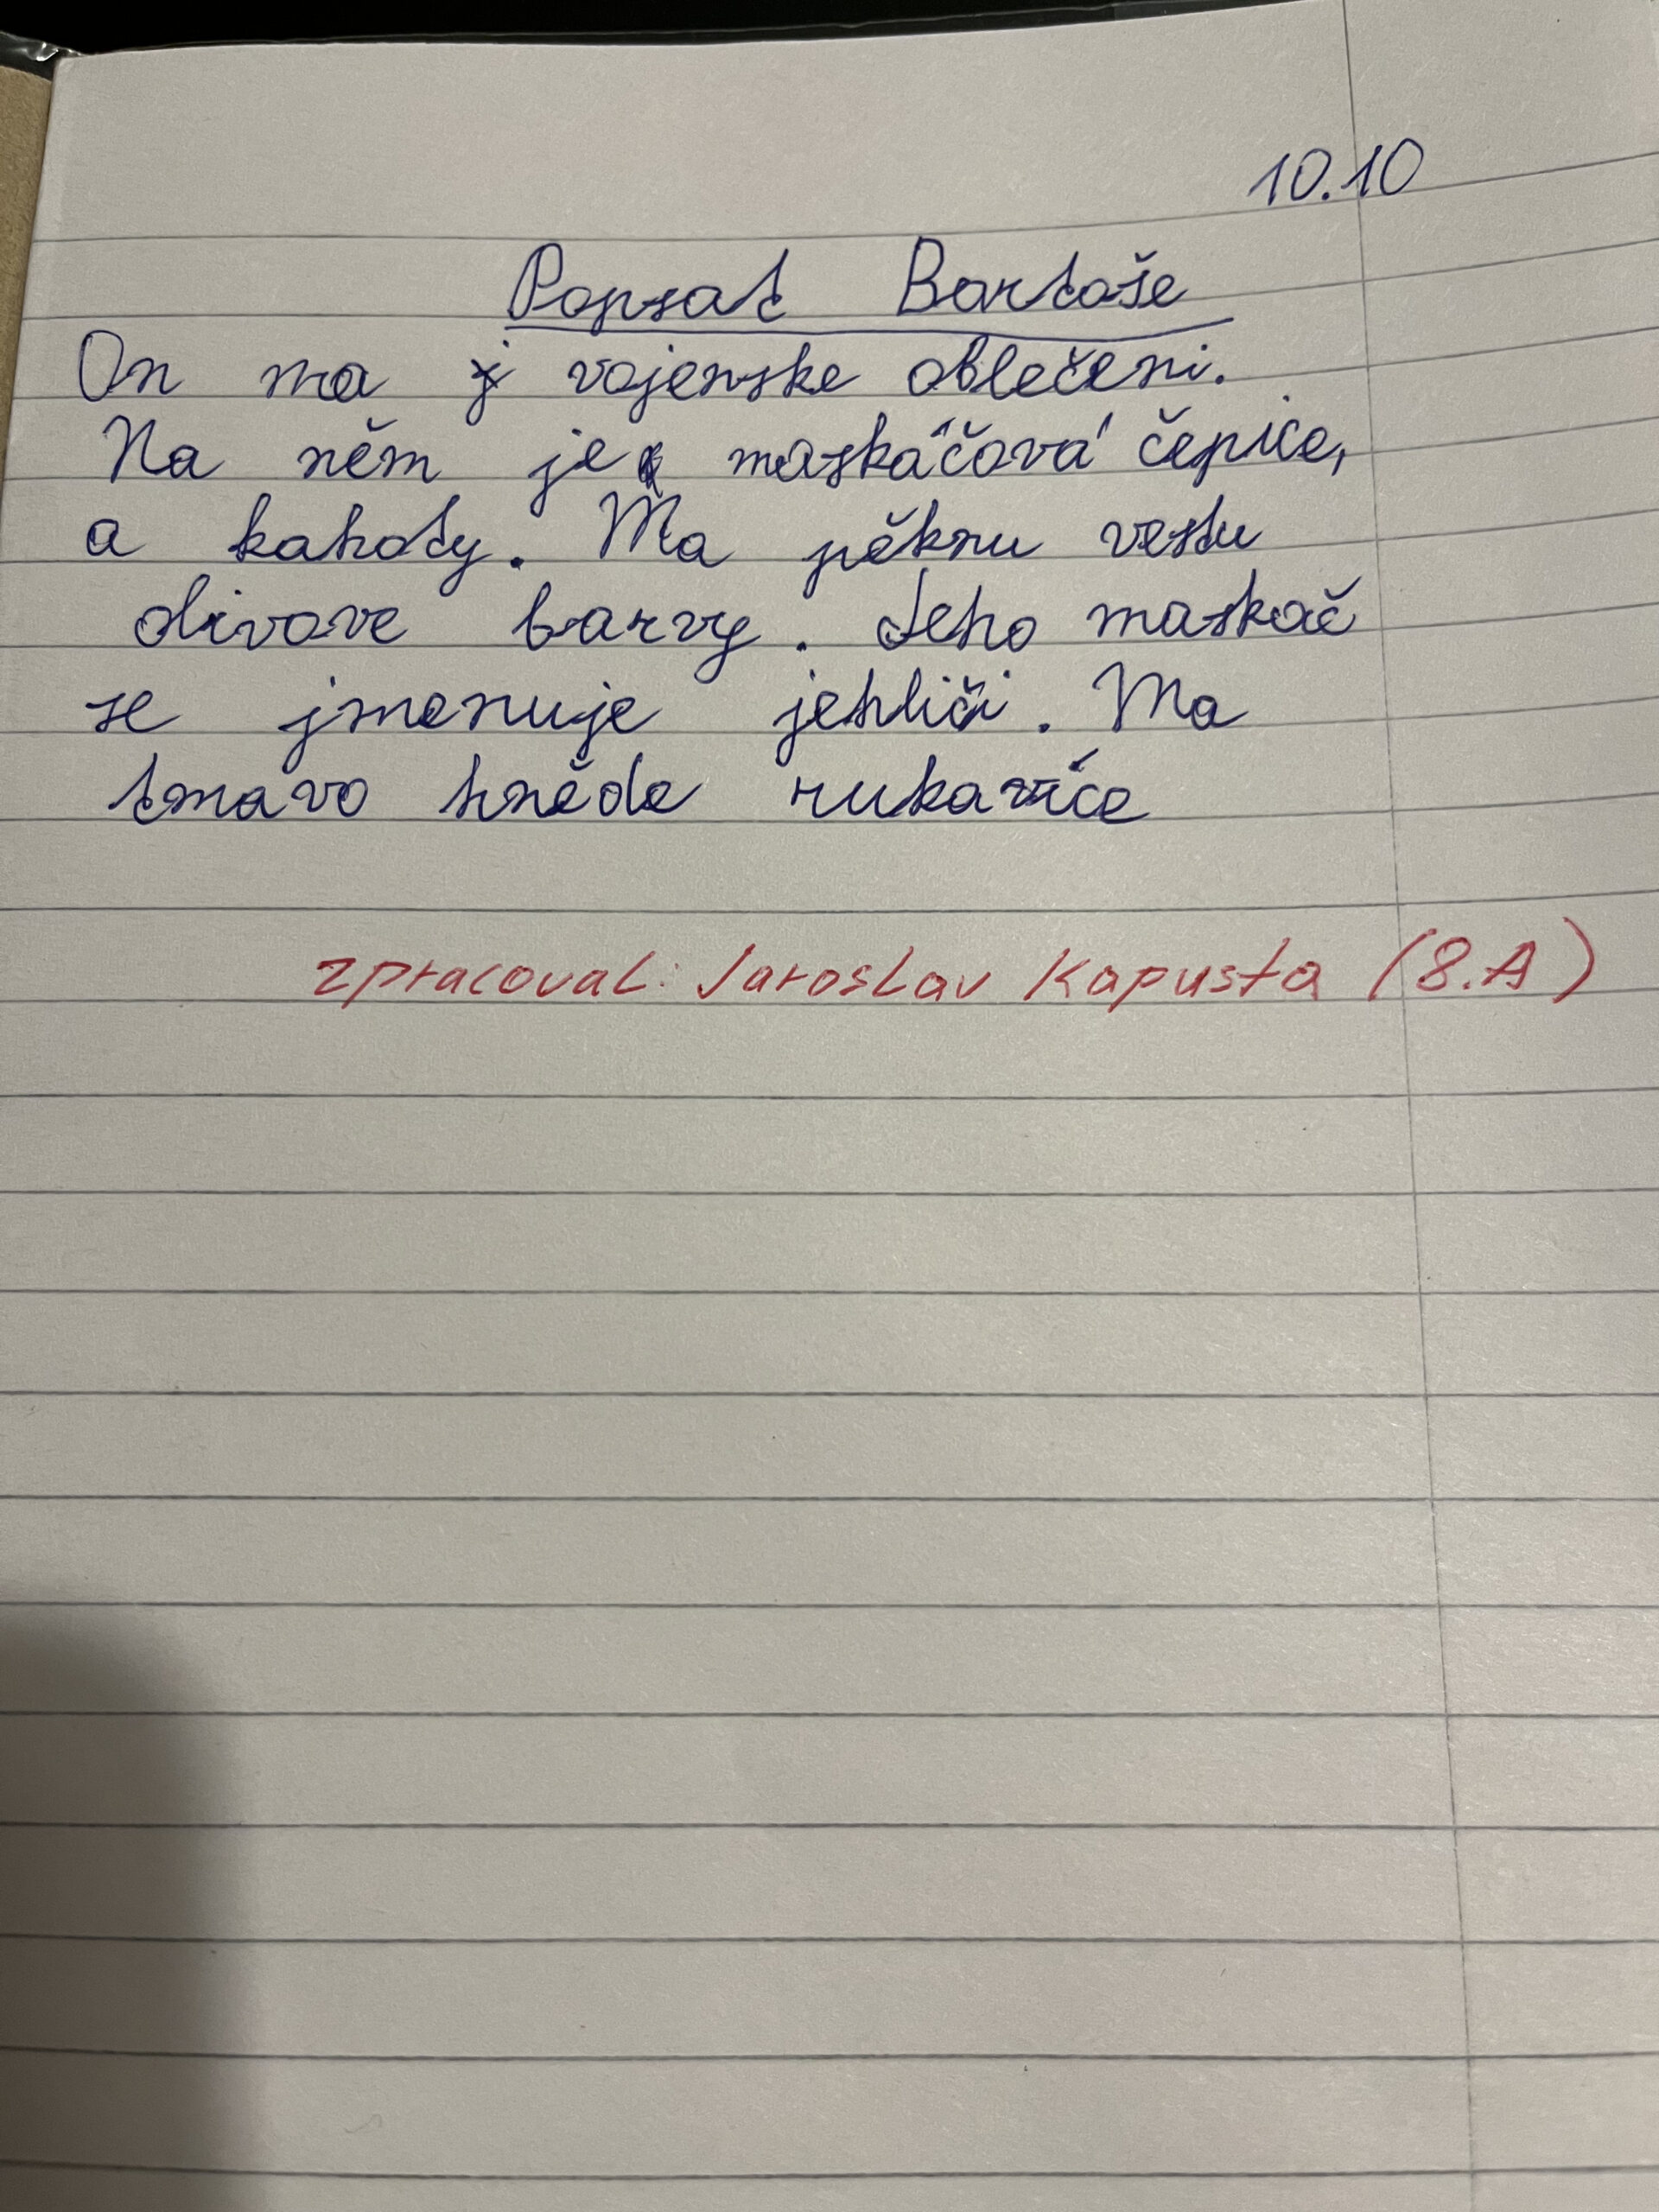 10.10
Popsat Bartoše
On ma vojenske oblečeni.
Na něm je maskáčová čepice,
a kahoty. Ma pěknu vestu
olivove barvy. Jeho maskač
se jmenuje jehliči. Ma
tmavo hněde rukavíce
zpracoval: Jaroslav Kapusta (8.A)